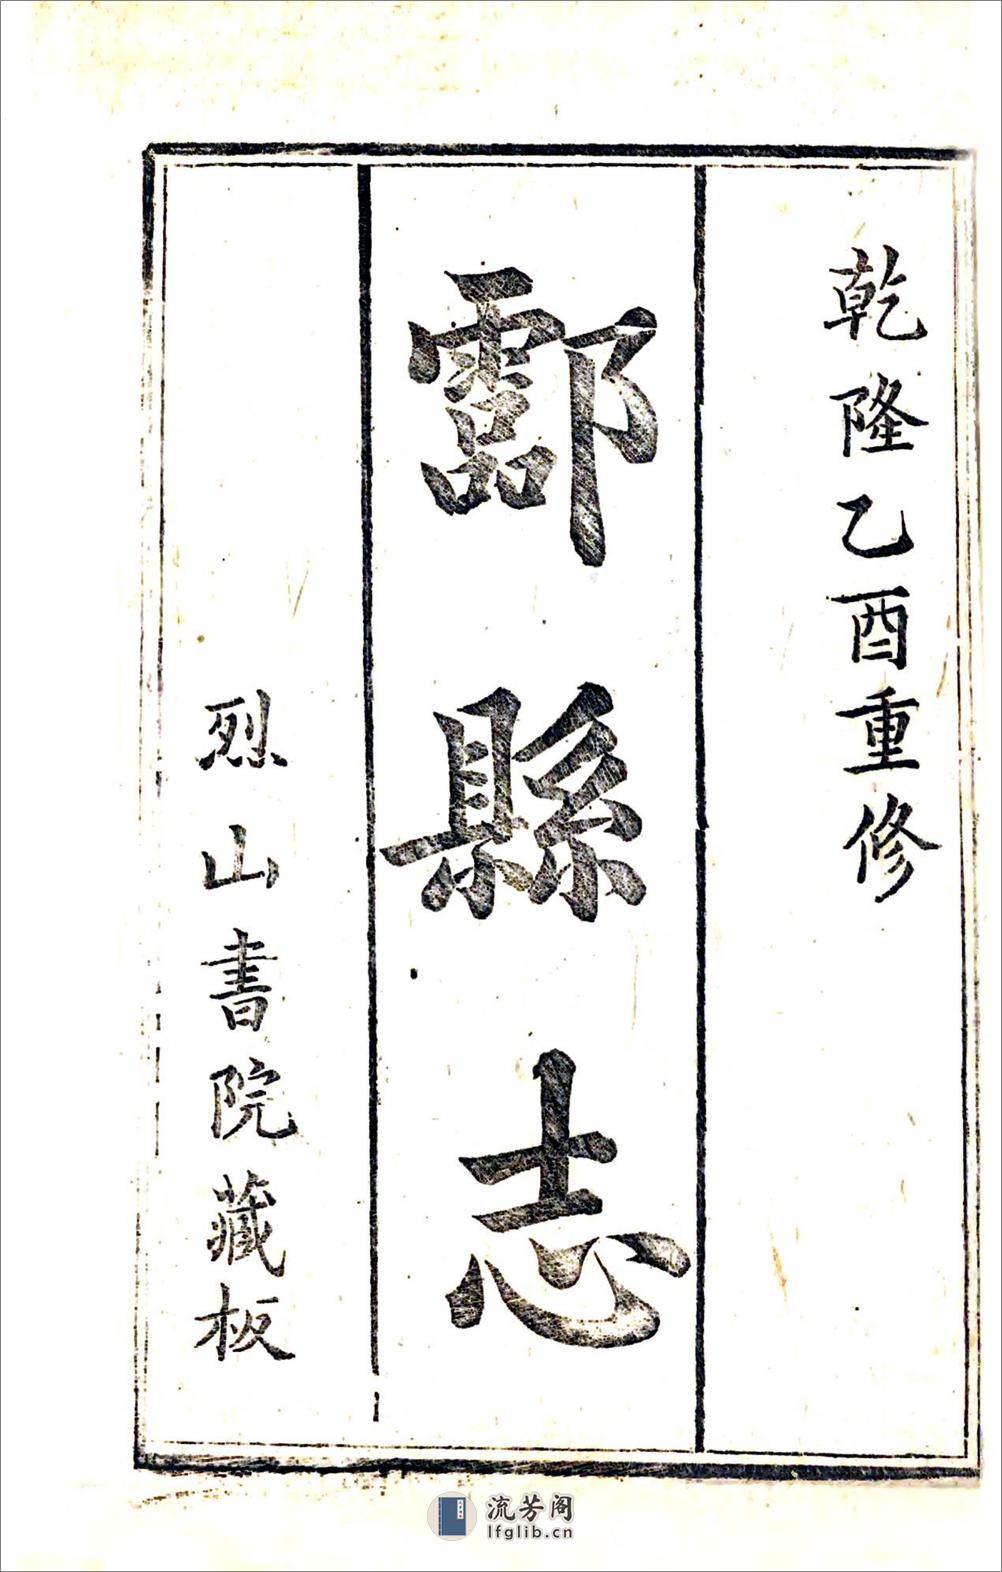 乾隆乙酉重修
酃縣志
烈山書院藏板
流芳阁
lfglib.cn